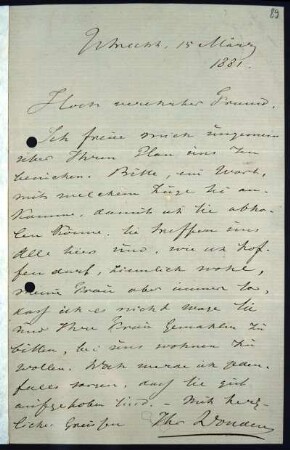 89
Utrecht. 15 März
1881.
Hoch verehrter Freund.
Ich freue mich ungemein
über Ihren Plan uns zu
besuchen. Bitte, ein Wort,
mit welchem Zuge Sie an-
kämme, damit ich Sie abho-
len könne. Sie treffen uns
Alle hier und, wie ich hof-
fen darf, ziemlich wohl,
meine Frau aber immer so,
dass ich es nicht wage Sie
und Ihre Frau Gemahlin zu
bitten, bei uns wohnen zu
wollen. Doch werde ich jeden-
falls sorgen, dass Sie gut
aufgehoben sind. - Mit herz-
lichen Grüssen Ihr Donders